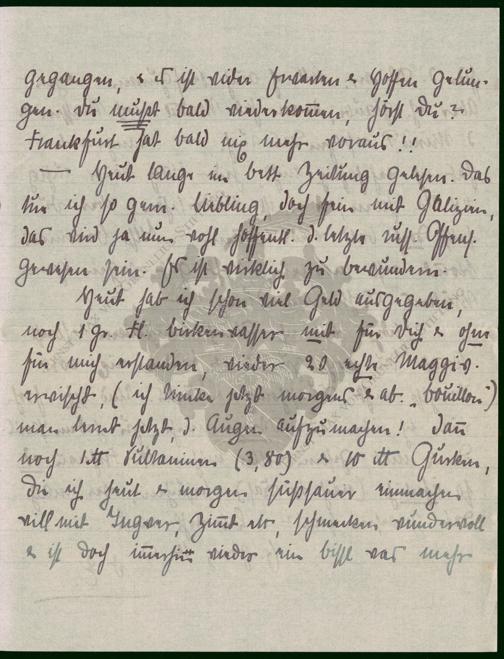 gegangen, & es ist wider Erwarten & Hoffen gelun-
gen. Du mußt bald wiederkom̄en, hörst Du?
Frankfurt hat bald nix mehr voraus!!
— Heut lange im bett Zeitung gelesen. Das
tue ich so gern. Liebling, doch fein mit Galizien,
das wird ja nun wohl hoffentl. d. letzte russ. Offens.
gewesen sein. Es ist wirklich zu bewundern.
Heut hab ich schon viel Geld ausgegeben,
noch 1 gr. Fl. birkenwasser mit für Dich & ohne
für mich erstanden, wieder 20 echte Maggiw.
erwischt, (ich trinke jetzt morgens & ab. „bouillon")
man lernt jetzt, d. Augen aufzumachen! Dan̄
noch 1 ℔ Sultaninen (3,80) & 10 ℔ Gurken,
die ich heut & morgen süßsauer einmachen
will mit Ingwer, Zim̄t etc, schmecken wundervoll
& ist doch im̄erhin wieder ein bissl was mehr